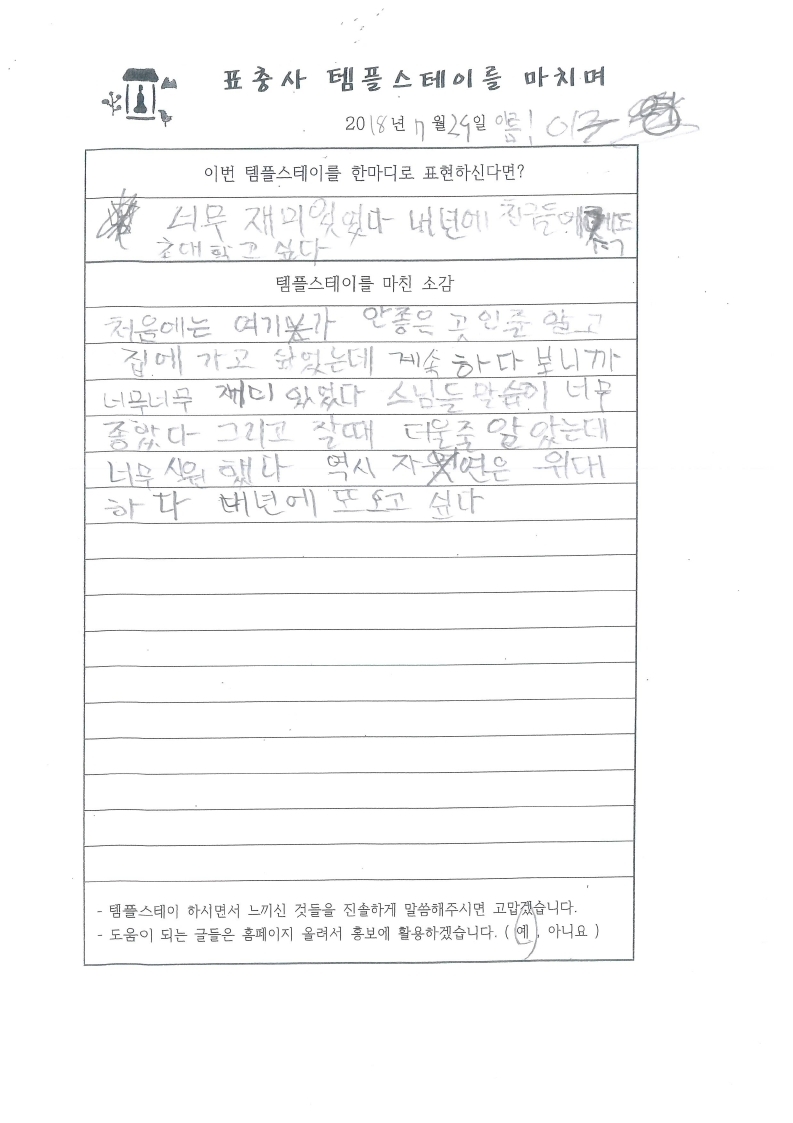 표충사 템플스테이를 마치며
2018년 7월 29일 이름! 이
이번 템플스테이를 한마디로 표현하신다면?
너무 재미있었다 내년에 친구들에게도
초대하고 싶다
템플스테이를 마친 소감
처음에는 여기가 안좋은 곳 인줄 알고
집에 가고 싶었는데 계속 하다 보니까
너무너무 재미 있었다 스님들 말씀이 너무
좋았다 그리고 잘때 더울줄 알았는데
너무 시원했다 역시 자연은 위대
하다 내년에 또 오고 싶다
- 템플스테이 하시면서 느끼신 것들을 진솔하게 말씀해주시면 고맙겠습니다.
- 도움이 되는 글들은 홈페이지 올려서 홍보에 활용하겠습니다. ( 예 , 아니요 )